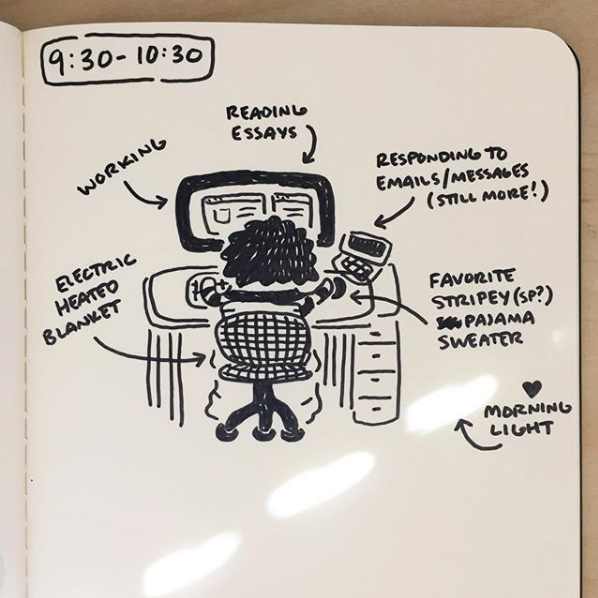 9:30-10:30
READING
ESSAYS
WORKING
RESPONDING TO
EMAILS/MESSAGES
(STILL MORE!)
ELECTRIC
HEATED
BLANKET
FAVORITE
STRIPEY (SP?)
PAJAMA
SWEATER
MORNING
LIGHT